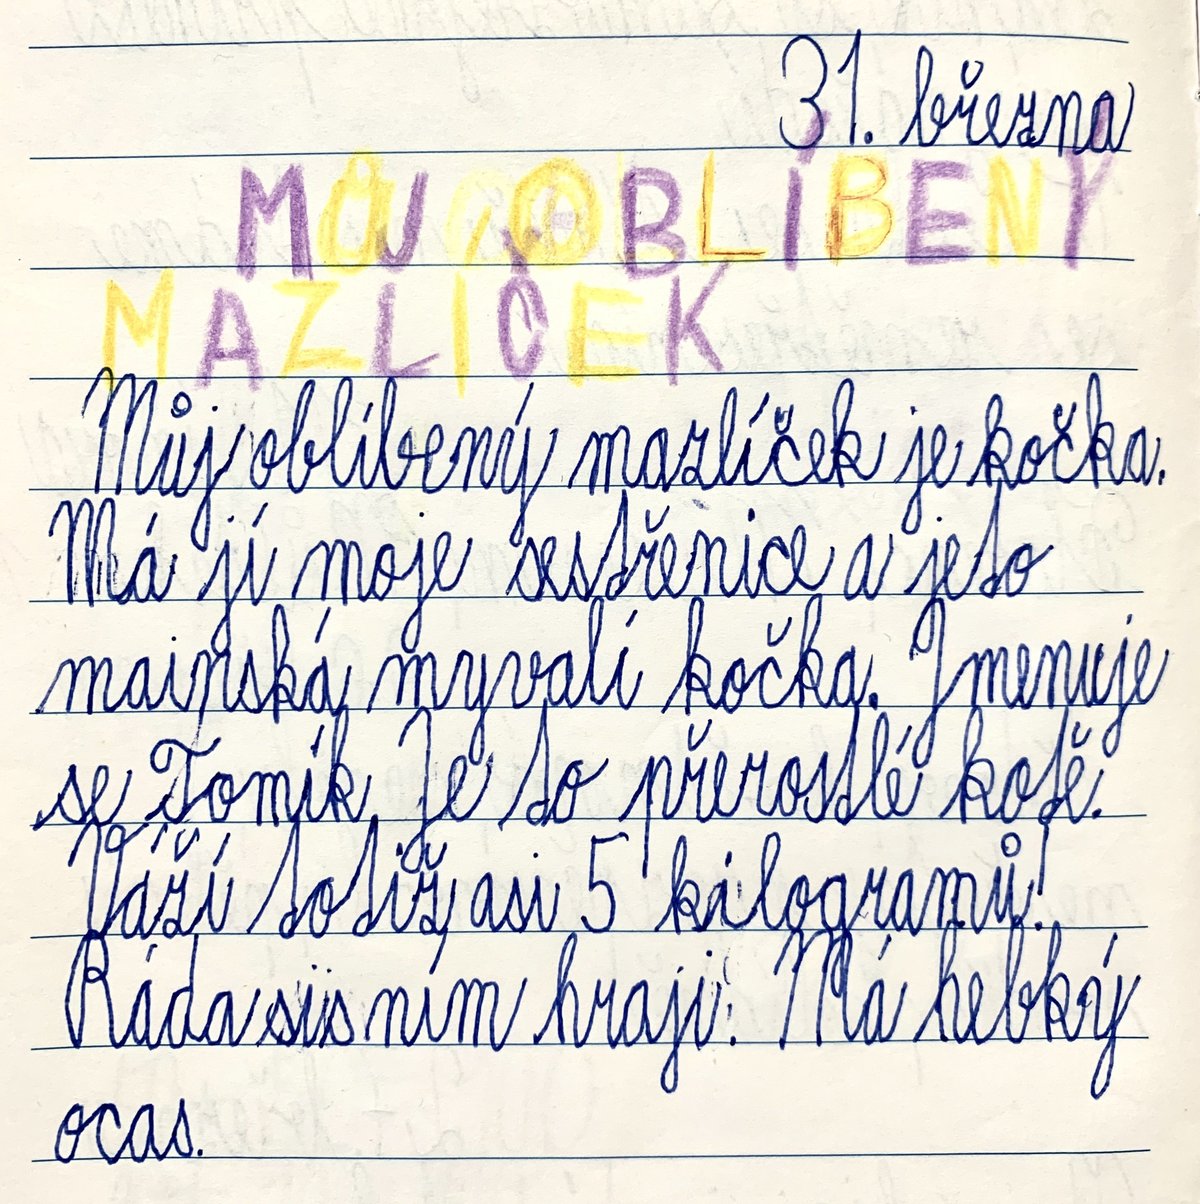 31. března
MŮJ OBLÍBENÝ
MAZLÍČEK
Můj oblíbený mazlíček je kočka.
Má jí moje sestřenice a je to
mainská myvalí kočka. Jmenuje
se Tomík. Je to přerostlé kotě.
Váží totiž asi 5 kilogramů!
Ráda si s ním hraji. Má hebký
ocas.